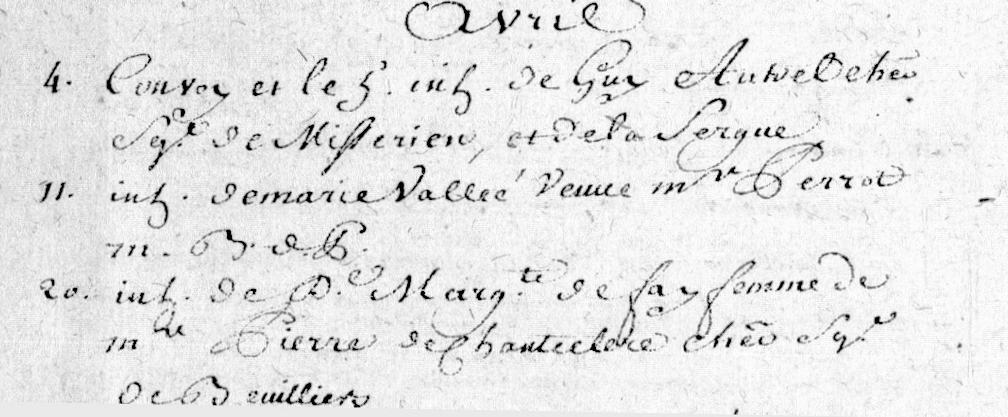 Avril
4. Convoy et le 3. inh. de Guy Autvel che.
Sgr. de Misserien, et de la Sergue
11. inh. de marie Valleé Veuue mr Perrot
m. B. d. P.
20. inh. de D.e Marg.te de fay femme de
m.re Pierre de Chanteclere che. Sgr
de Beuilliers